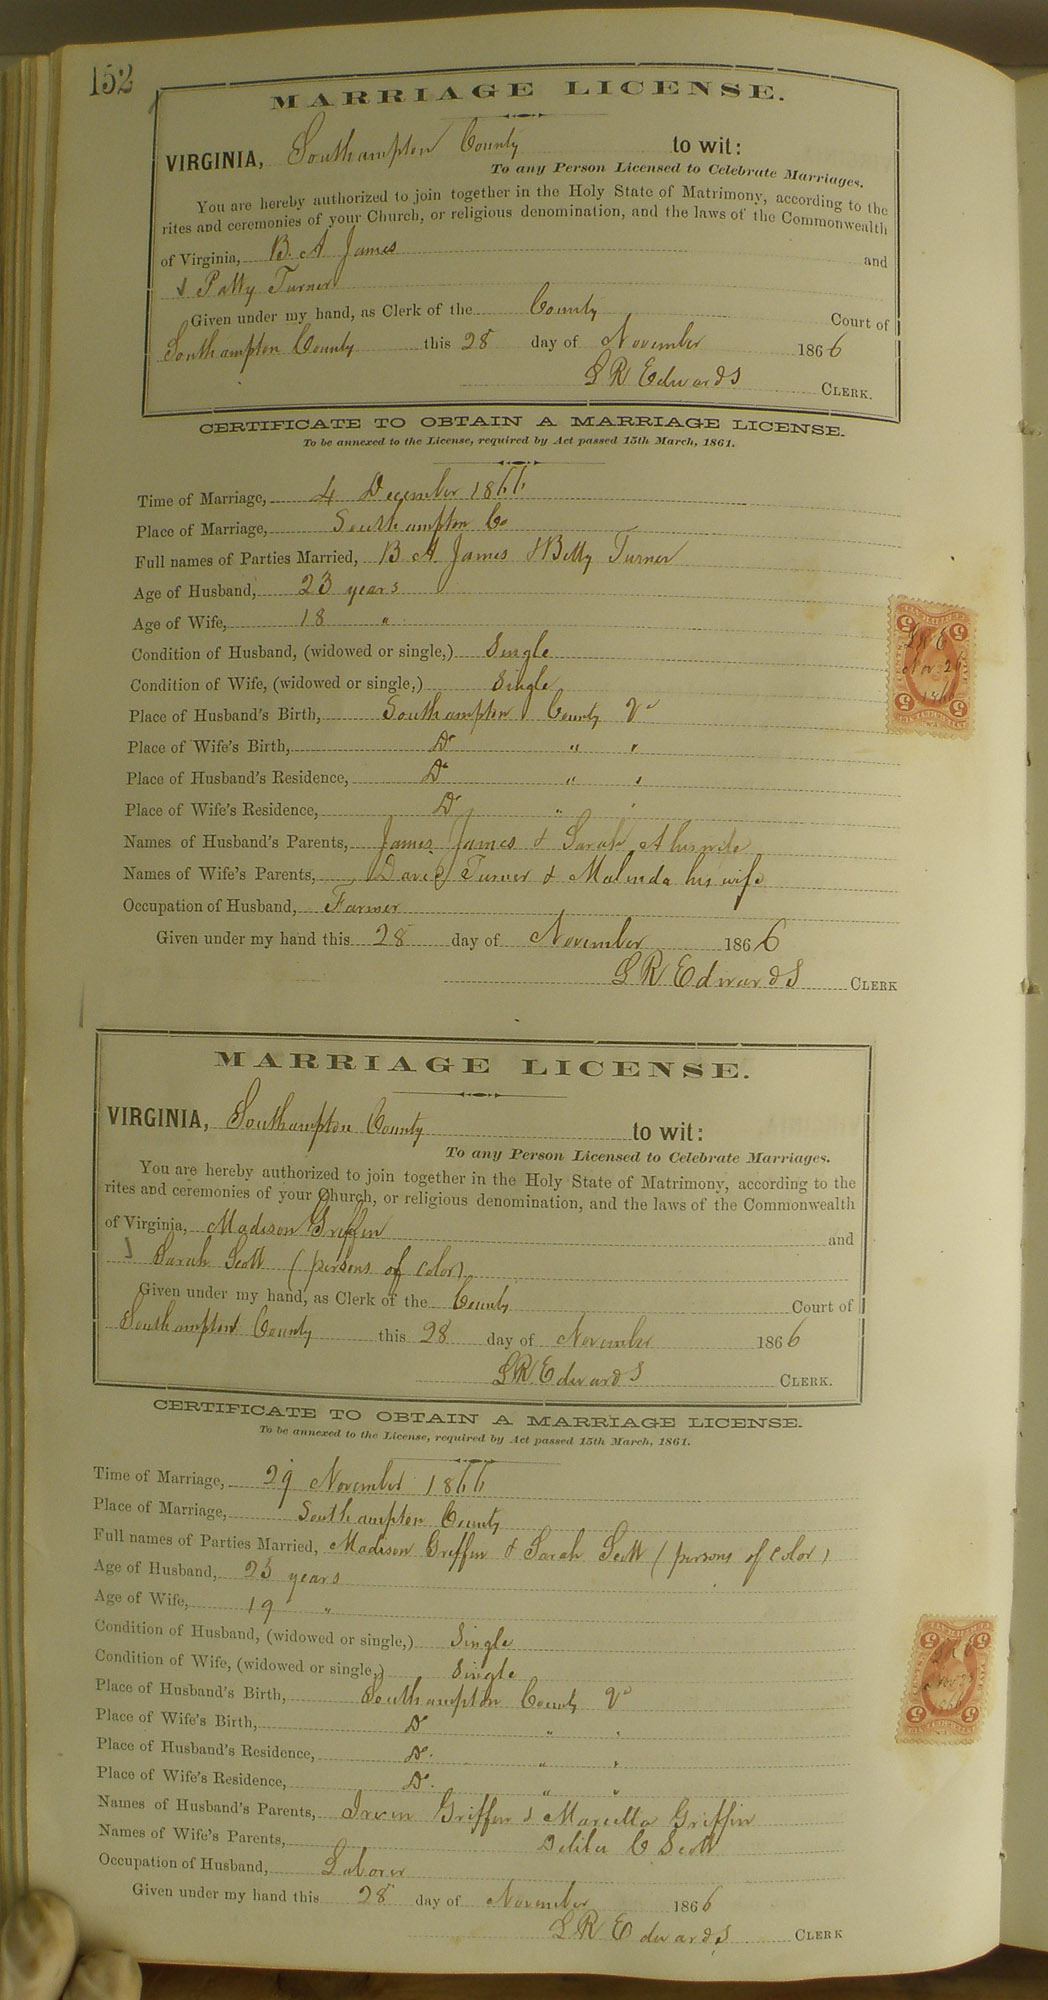 152
MARRIAGE LICENSE.
VIRGINIA, Southampton County to wit:
To any Person Licensed to Celebrate Marriages.
You are hereby authorized to join together in the Holy State of Matrimony, according to the
rites and ceremonies of your Church, or religious denomination, and the laws of the Commonwealth
of Virginia, B. A James and
Patty Turner
Given under my hand, as Clerk of the County Court of
Southampton County this 28 day of November 1866
L R Edwards CLERK.
CERTIFICATE TO OBTAIN A MARRIAGE LICENSE.
To be annexed to the License, required by Act passed 15th March, 1861.
Time of Marriage, 4 December 1866
Place of Marriage, Southampton Co
Full names of Parties Married, B A James & Betty Turner
Age of Husband, 23 years
Age of Wife, 18 "
Condition of Husband, (widowed or single,) Single
Condition of Wife, (widowed or single,) Single
Place of Husband's Birth, Southampton County Va
Place of Wife's Birth, Do " "
Place of Husband's Residence, Do " "
Place of Wife's Residence, Do " "
Names of Husband's Parents, James James & Sarah A his wife
Names of Wife's Parents, David Turner & Malinda his wife
Occupation of Husband, Farmer
Given under my hand this 28 day of November 1866
L R Edwards CLERK
5 5
L R E
Nov. 28
1866
5 5
MARRIAGE LICENSE.
VIRGINIA, Southampton County to wit:
To any Person Licensed to Celebrate Marriages.
You are hereby authorized to join together in the Holy State of Matrimony, according to the
rites and ceremonies of your Church, or religious denomination, and the laws of the Commonwealth
of Virginia, Madison Griffin and
Sarah Scott (persons of color)
Given under my hand, as Clerk of the County Court of
Southampton County this 28 day of November 1866
L R Edwards CLERK.
CERTIFICATE TO OBTAIN A MARRIAGE LICENSE.
To be annexed to the License, required by Act passed 15th March, 1861.
Time of Marriage, 29 November 1866
Place of Marriage, Southampton County
Full names of Parties Married, Madison Griffin & Sarah Scott (persons of color)
Age of Husband, 23 years
Age of Wife, 19 "
Condition of Husband, (widowed or single,) Single
Condition of Wife, (widowed or single,) Single
Place of Husband's Birth, Southampton County Va
Place of Wife's Birth, Do " "
Place of Husband's Residence, Do " "
Place of Wife's Residence, Do " "
Names of Husband's Parents, Irvin Griffin & Marietta Griffin
Names of Wife's Parents, C Scott
Occupation of Husband, Laborer
Given under my hand this 28 day of November 1866
L R Edwards CLERK
5 5
L R E
5 5